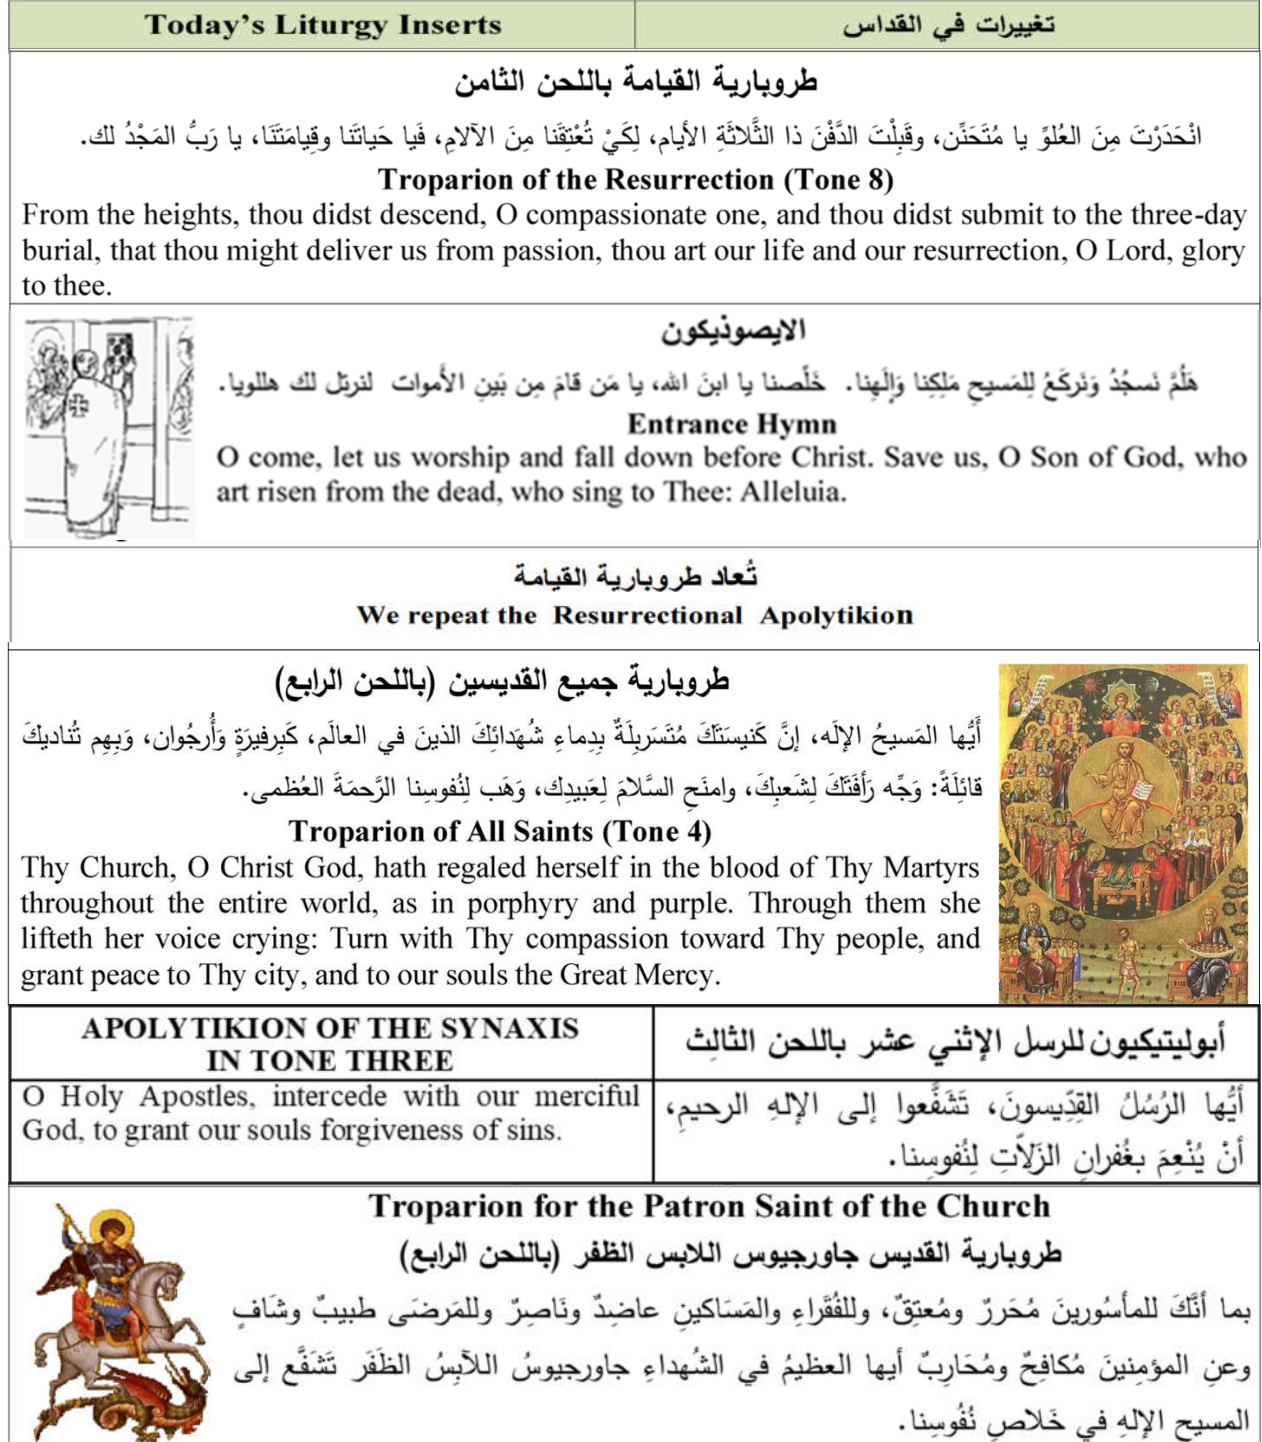 Today's Liturgy Inserts
تغييرات في القداس
طروبارية القيامة باللحن الثامن
انْحَدَرْتَ مِنَ العُلوِّ يا مُتَحَنِّن، وقَبِلْتَ الدَّفْنَ ذا الثَّلاثَةِ الأيام، لِكَيْ تُعْتِقَنا مِنَ الآلامِ، فَيا حَياتَنا وقِيامَتَنَا، يا رَبُّ المَجْدُ لك.
Troparion of the Resurrection (Tone 8)
From the heights, thou didst descend, O compassionate one, and thou didst submit to the three-day
burial, that thou might deliver us from passion, thou art our life and our resurrection, O Lord, glory
to thee.
الايصوذيكون
هَلُمَّ نَسجُدُ وَنَركَعُ لِلمَسيحِ مَلِكِنا وَإلَهِنا. خَلِّصنا يا ابنَ الله، يا مَن قامَ مِن بَينِ الأَموات لنرتل لك هللويا.
Entrance Hymn
O come, let us worship and fall down before Christ. Save us, O Son of God, who
art risen from the dead, who sing to Thee: Alleluia.
تُعاد طروبارية القيامة
We repeat the Resurrectional Apolytikion
طروبارية جميع القديسين (باللحن الرابع)
أَيُّها المَسيحُ الإلَه، إنَّ كَنيسَتَكَ مُتَسَربِلَةٌ بِدِماءِ شُهَدائِكَ الذينَ في العالَم، كَبِرفيرَةٍ وَأُرجُوان، وَبِهِم تُناديكَ
قائِلَةً: وَجِّه رَأفَتَكَ لِشَعبِكَ، وامنَحِ السَّلامَ لِعَبيدِك، وَهَب لِنُفوسِنا الرَّحمَةَ العُظمى.
Troparion of All Saints (Tone 4)
Thy Church, O Christ God, hath regaled herself in the blood of Thy Martyrs
throughout the entire world, as in porphyry and purple. Through them she
lifteth her voice crying: Turn with Thy compassion toward Thy people, and
grant peace to Thy city, and to our souls the Great Mercy.
APOLYTIKION OF THE SYNAXIS
IN TONE THREE
أبوليتيكيون للرسل الإثني عشر باللحن الثالث
O Holy Apostles, intercede with our merciful
God, to grant our souls forgiveness of sins.
أيُّها الرُسُلُ القِدِّيسونَ، تَشَفَّعوا إلى الإلهِ الرحيمِ،
أنْ يُنْعِمَ بغُفرانِ الزَلاّتِ لِنُفوسِنا.
Troparion for the Patron Saint of the Church
طروبارية القديس جاورجيوس اللابس الظفر (باللحن الرابع)
بما أنَّكَ للمأسُورينَ مُحَررٌ ومُعتِقٌ، وللفُقَراءِ والمَسَاكينِ عاضِدٌ ونَاصِرٌ وللمَرضَى طبيبٌ وشَافٍ
وعنِ المؤمِنينَ مُكافِحٌ ومُحَارِبٌ أيها العظيمُ في الشُهداءِ جاورجيوسُ اللآبِسُ الظَفَر تَشَفَّع إلى
المسيحِ الإلهِ في خَلاصِ نُفُوسِنا.